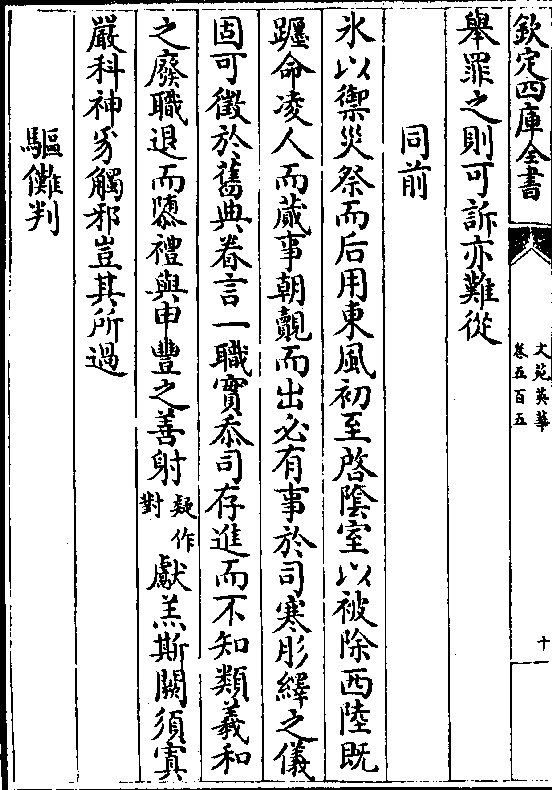 欽定四庫全書
文苑英華
卷五百五
十
舉罪之則可訴亦難從
同前
氷以禦災祭而后用東風初至啓隂室以被除西陸既
躔命凌人而蕆事朝覿而出必有事於司寒肜繹之儀
固可徵於舊典眷言一職實忝司存進而不知類羲和
之廢職退而隳禮與申豐之善射
疑作
對
獻羔斯闕須寘
嚴科神豸觸邪豈其所過
驅儺判